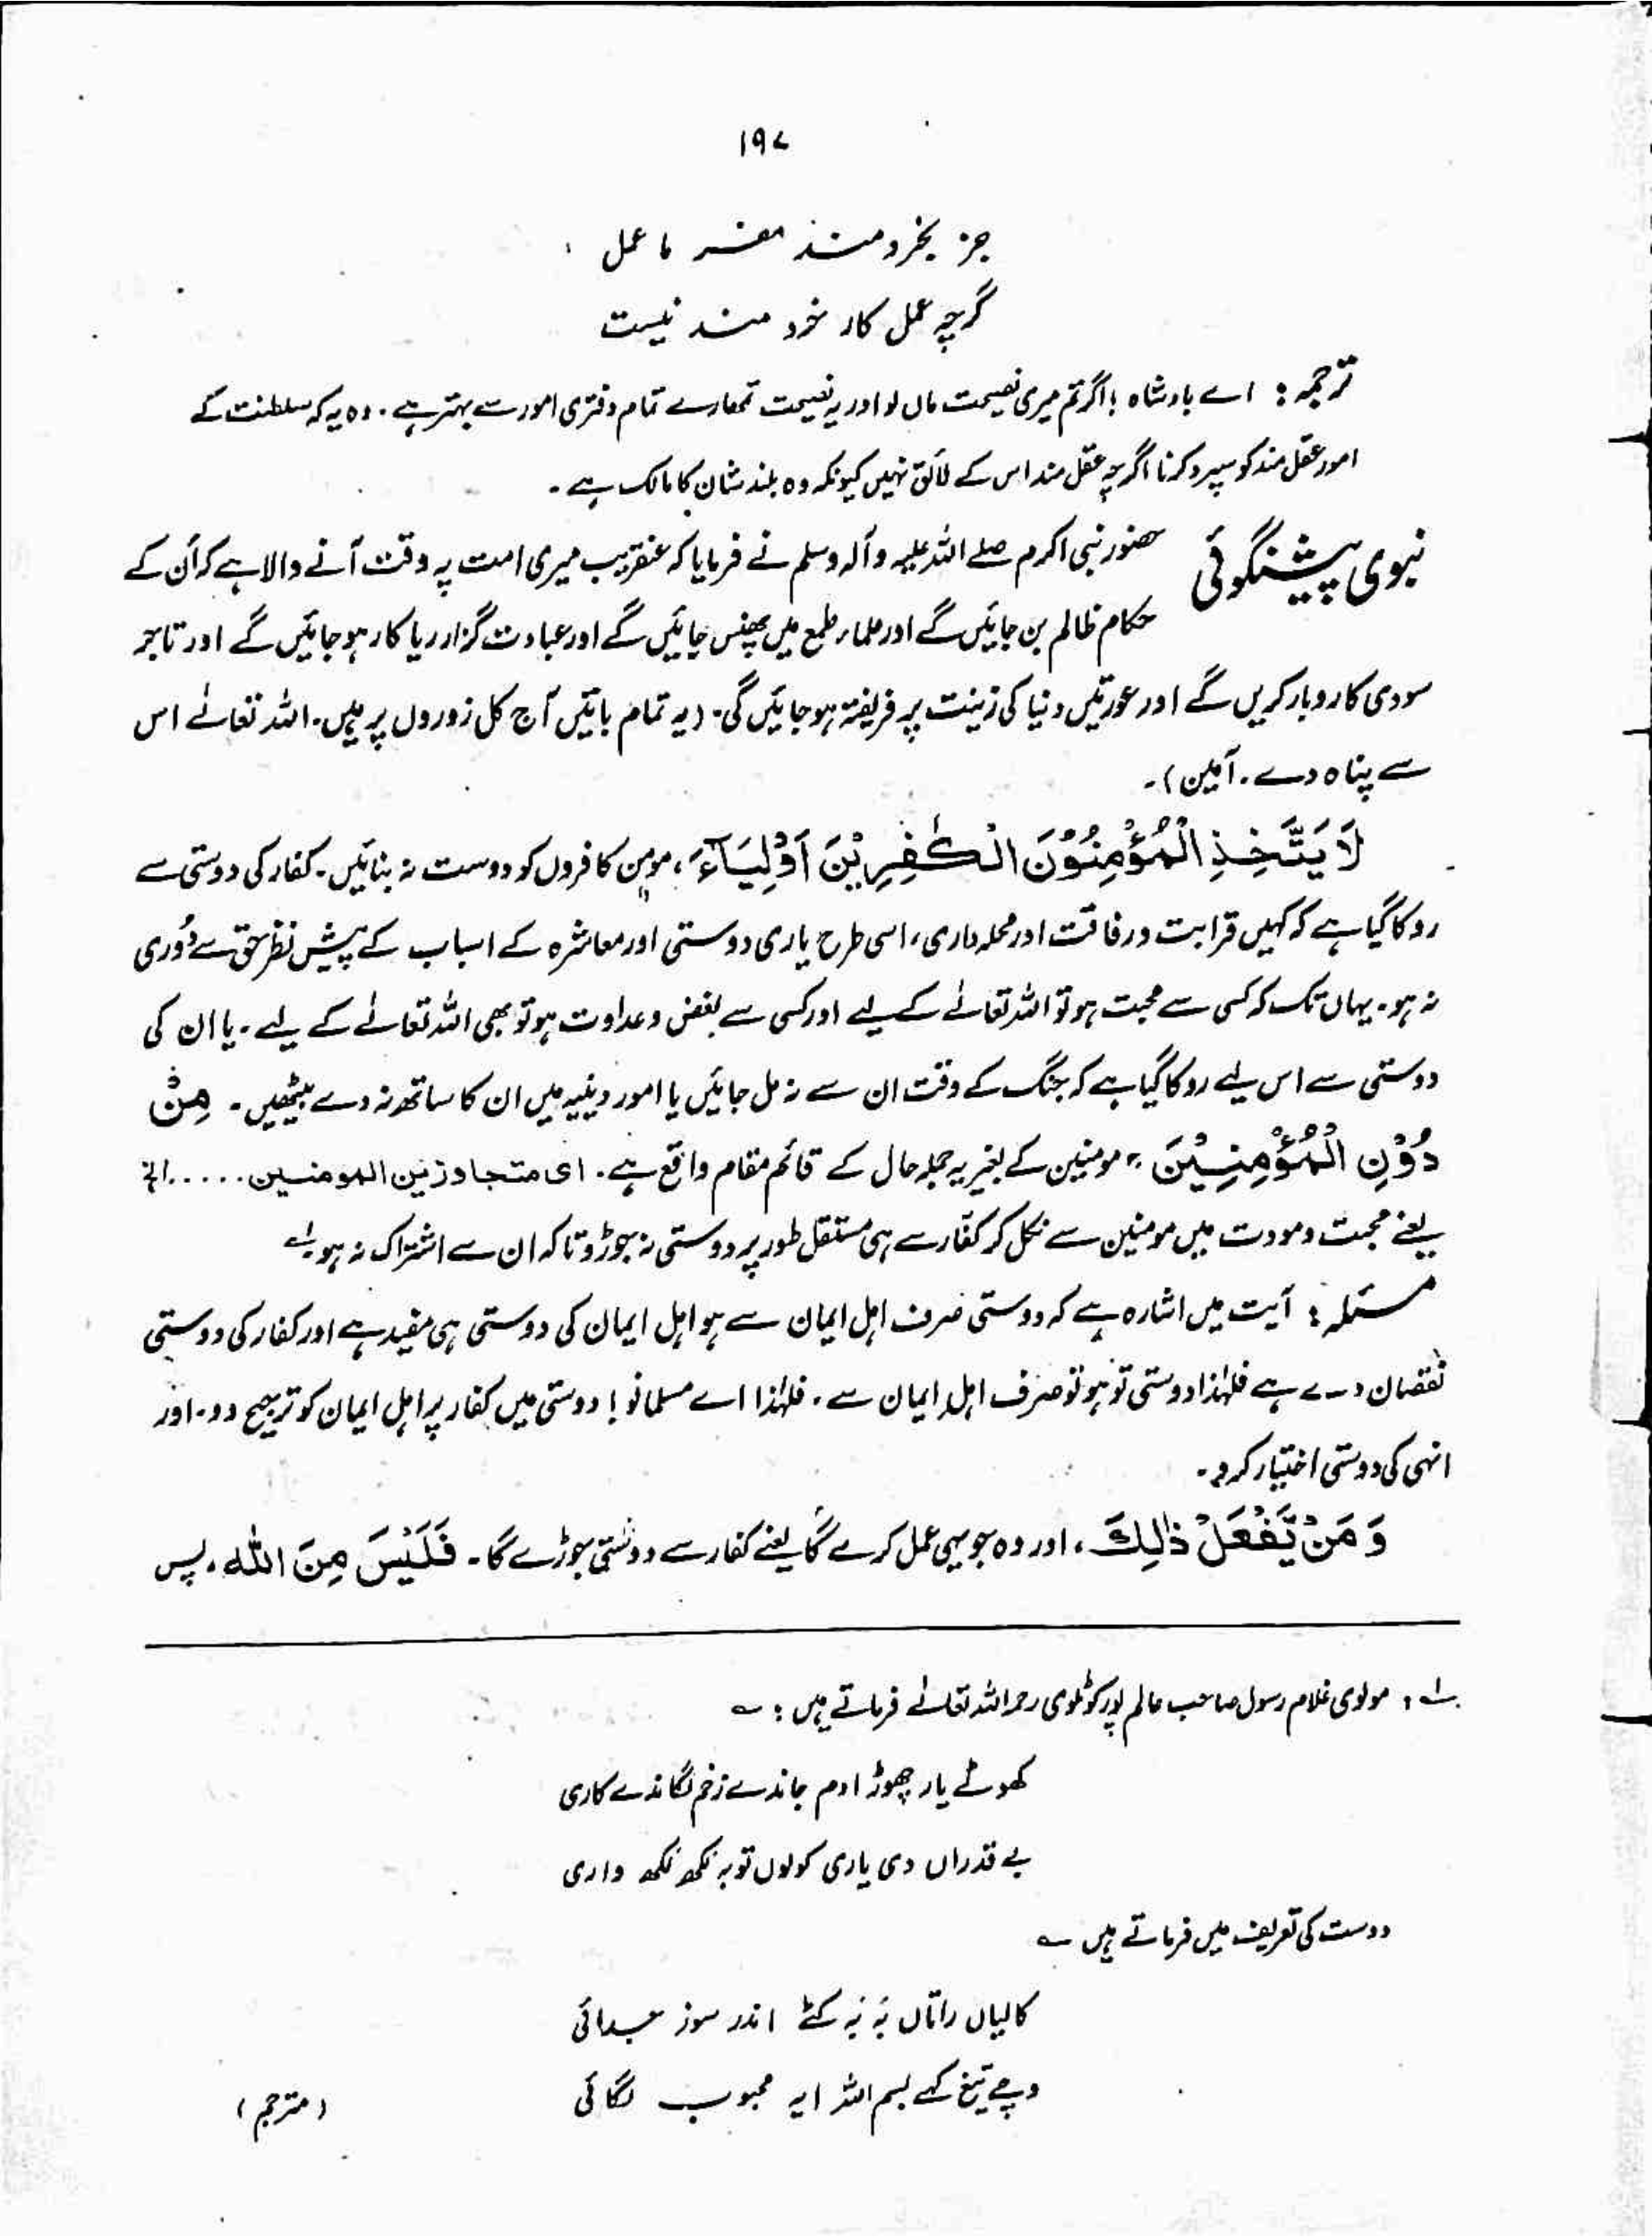 ۱۹۷
جز بخردمند مفسر ما عمل
گرچہ عمل کار خرد مند نیست
ترجمہ : اے بادشاہ ! اگر تم میری نصیحت مان لو اور یہ نصیحت تمھارے تمام دفتری امور سے بہتر ہے ۔ وہ یہ کہ سلطنت کے
امور عقل مند کو سپرد کرنا اگرچہ عقل مند اس کے لائق نہیں کیونکہ وہ بلند شان کا مالک ہے ۔
نبوی پیشنگوئی حضور نبی اکرم صلے اللہ علیہ وآلہ وسلم نے فرمایا کہ عنقریب میری امت پہ وقت آنے والا ہے کہ اُن کے
حکام ظالم بن جائیں گے اور علماء طمع میں پھنس جائیں گے اور عبادت گزار ریا کار ہو جائیں گے اور تاجر
سودی کاروبار کریں گے اور عورتیں دنیا کی زینت پر فریفتہ ہو جائیں گی ۔ (یہ تمام باتیں آج کل زوروں پر ہیں ۔ اللہ تعالےٰ اس
سے پناہ دے ۔ آمین) ۔
لَا يَتَّخِذِ الْمُؤْمِنُوْنَ الْكٰفِرِيْنَ اَوْلِيَآءَ ، مومن کافروں کو دوست نہ بنائیں ۔ کفار کی دوستی سے
روکا گیا ہے کہ کہیں قرابت و رفاقت اور محلہ داری ، اسی طرح یاری دوستی اور معاشرہ کے اسباب کے پیش نظر حق سے دُوری
نہ ہو ۔ یہاں تک کہ کسی سے محبت ہو تو اللہ تعالےٰ کے لیے اور کسی سے بغض و عداوت ہو تو بھی اللہ تعالےٰ کے لیے ۔ یا ان کی
دوستی سے اس لیے روکا گیا ہے کہ جنگ کے وقت ان سے نہ مل جائیں یا امور دینیہ میں ان کا ساتھ نہ دے بیٹھیں ۔ مِنْ
دُوْنِ الْمُؤْمِنِيْنَ ، مومنین کے بغیر یہ جملہ حال کے قائم مقام واقع ہے ۔ ای متجاوزین المومنین ..... الخ
یعنے محبت و مودت میں مومنین سے نکل کر کفّار سے ہی مستقل طور پر دوستی نہ جوڑو تاکہ ان سے اشتراک نہ ہو ۔ لـ
مسئلہ : آیت میں اشارہ ہے کہ دوستی صرف اہل ایمان سے ہو اہل ایمان کی دوستی ہی مفید ہے اور کفار کی دوستی
نقصان دہ ہے فلہٰذا دوستی تو ہو تو صرف اہل ایمان سے ۔ فلہٰذا اے مسلمانو ! دوستی میں کفار پر اہل ایمان کو ترجیح دو ۔ اور
انہی کی دوستی اختیار کرو ۔
وَ مَنْ يَّفْعَلْ ذٰلِكَ ، اور وہ جو یہی عمل کرے گا یعنے کفار سے دوستی جوڑے گا ۔ فَلَيْسَ مِنَ اللّٰهِ ، پس
لـ : مولوی غلام رسول صاحب عالم پور کوٹلوی رحمہ اللہ تعالےٰ فرماتے ہیں : ؎
کھوٹے یار چھوڑ ادم جاندے زخم لگاندے کاری
بے قدراں دی یاری کولوں توبہ لکھ لکھ واری
دوست کی تعریف میں فرماتے ہیں ؎
کالیاں راتاں بَہ بَہ کٹے اندر سوز جدائی
وچے تیغ کہے بسم اللہ ایہ محبوب لگائی
(مترجم)